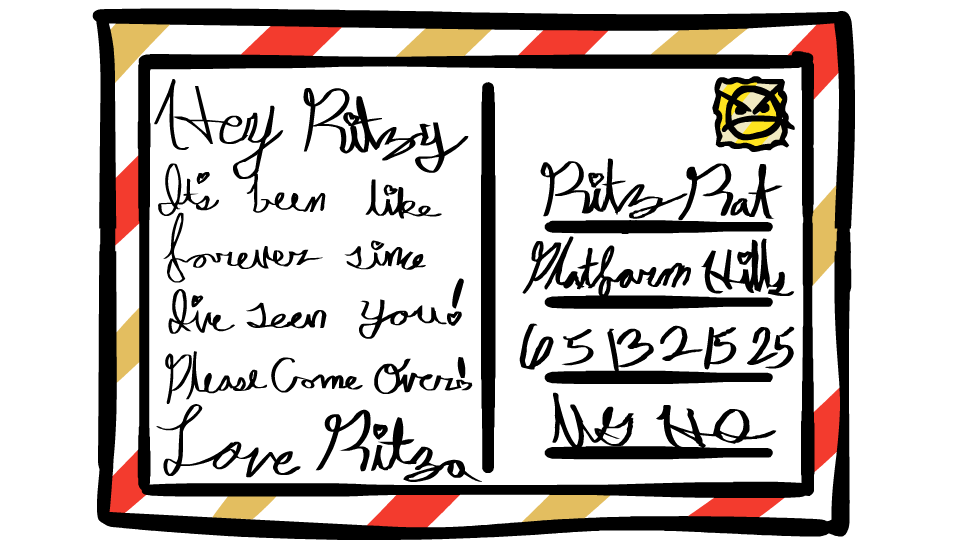 Hey Ritzy
It's been like
forever since
I've seen you!
Please Come Over!
Love Ritza
Ritz Rat
Platform Hills
6 5 13 2 15 25
NG HQ